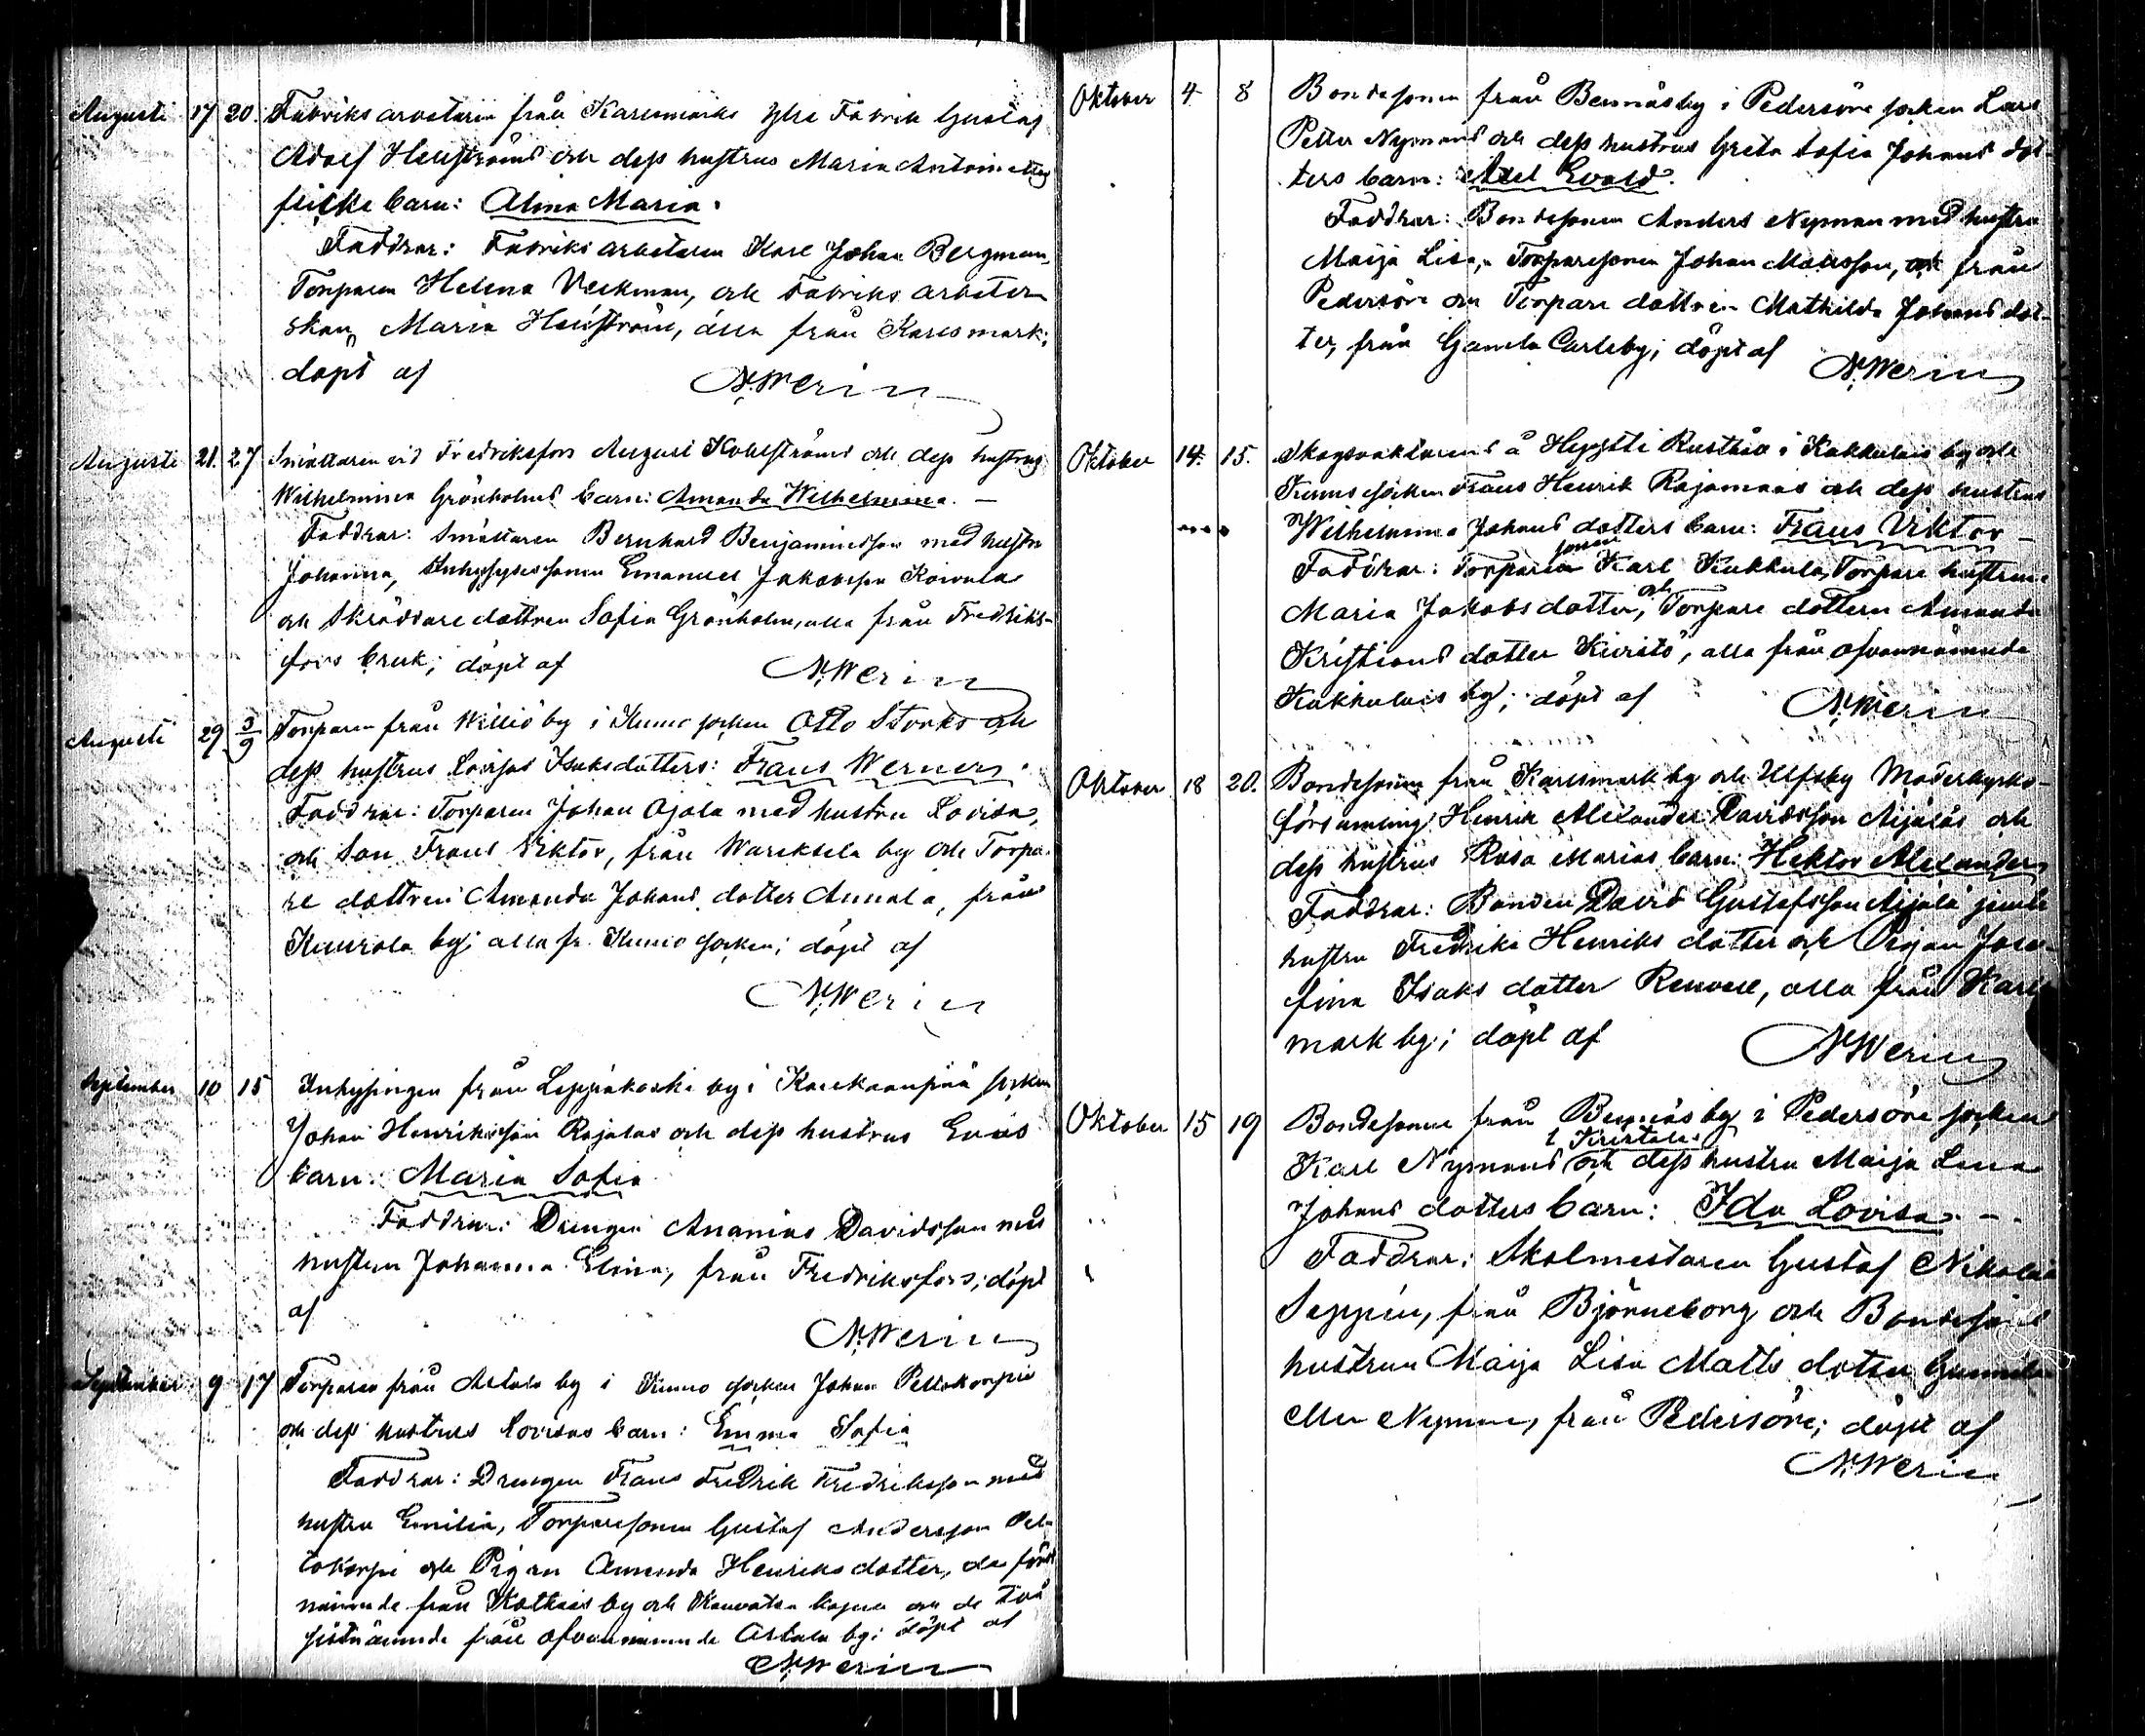 Augusti 17 20. Fabriks arbetaren från Karlsmarks Fabrik Gustaf
Adolf Hellströms och dess hustrus Maria Antoinettas
flicke barn: Alma Maria.
Faddrar: Fabriks arbetaren Karl Johan Bergman,
Torparen Helena Veckman, och Fabriks arbeter-
skan Maria Hellström, alla från Karlsmark;
döpt af
N. Werin
Augusti 21. 27 Smältaren vid Fredriksfors August Kohlströms och dess hustrus
Wilhelmina Grönholms barn: Amanda Wilhelmina. –
Faddrar: Smältaren Bernhard Benjaminsson med hustru
Johanna, Inhysessonen Emanuel Jakobsson Koivula
och Skräddare dottren Sofia Grönholm, alla från Fredriks-
fors bruk; döpt af
N. Werin
Augusti 29 3/9 Torparen från Williö by i Kumo socken Otto Storks och
dess hustrus Lovisas Isaksdotters: Frans Werner.
Faddrar: Torparen Johan Ojala med hustru Lovisa,
och Son Frans Viktor, från by och Torpa-
re dottren Amanda Johans dotter Annala, från
Kaurola by; alla fr. Kumo socken; döpt af
N. Werin
September 10 15 Inhysingen från Leppäkoski by i Kankaanpää socken
Johan Henriksson Rajalas och dess hustrus Evas
barn: Maria Sofia
Faddrar: Drengen Ananias Davidsson med
hustrun Johanna Elina, från Fredriksfors; döpt
af
N. Werin
September 9 17 Torparen från Artola by i Kumo socken Johan Peltokorpis
och dess hustrus Lovisas barn: Emma Sofia
Faddrar: Drengen Frans Fredrik Fredriksson med
hustru Emilia, Torparesonen Gustaf Andersson Pel-
tokorpi och Pigan Amanda Henriksdotter, de först
nämnde från by och kapell och de två
sistnämnde från ofvannämnde Artola by; döpt af
N. Werin
Oktober 4 8 Bondesonen från Bennäsby i Pedersöre socken Lars
Petter Nymans och dess hustrus Greta Sofia Johans dot-
ters barn: Axel Evald.
Faddrar: Bondesonen Anders Nyman med hustru
Maija Lisa, Torparesonen Johan Matsson, från
Pedersöre och Torpare dottren Mathilda Johans dot-
ter, från Gamla Carleby; döpt af
N. Werin
Oktober 14. 15. Skogsvaktarens å Rusthåll i Kukkulais by och
Kumo socken Frans Henrik Rajamaas och dess hustrus
Wilhelmina Johans dotters barn: Frans Viktor –
Faddrar: Torpare sonen Karl Kukkula, Torpare hustrun
Maria Jakobs dotter, och Torpare dottern Amanda
Kristians dotter Kivistö, alla från ofvannämnde
Kukkulais by; döpt af
N. Werin
Oktober 18 20. Bondesonen från Karlsmark by och Ulfsby Moderkyrko-
församling Henrik Alexander Davidsson Äijäläs och
dess hustrus Rosa Marias barn: Hektor Alexander
Faddrar: Bonden David Gustafsson Äijälä jemte
hustru Fredrika Henriks dotter och Pigan Jose-
fina Isaks dotter Renvall, alla från Karls
mark by; döpt af
N. Werin
Oktober 15 19 Bondesonen från Bennäs by i Pedersöre socken
Karl Nymans och dess hustru Maija Lena
Johans dotters barn: Ida Lovisa –.
Faddrar: Skolmestaren Gustaf Nikolai
Seppin, från Björneborg och Bondesons
hustrun Maija Lisa Matts dotter
eller Nyman, från Pedersöre; döpt af
N. Werin